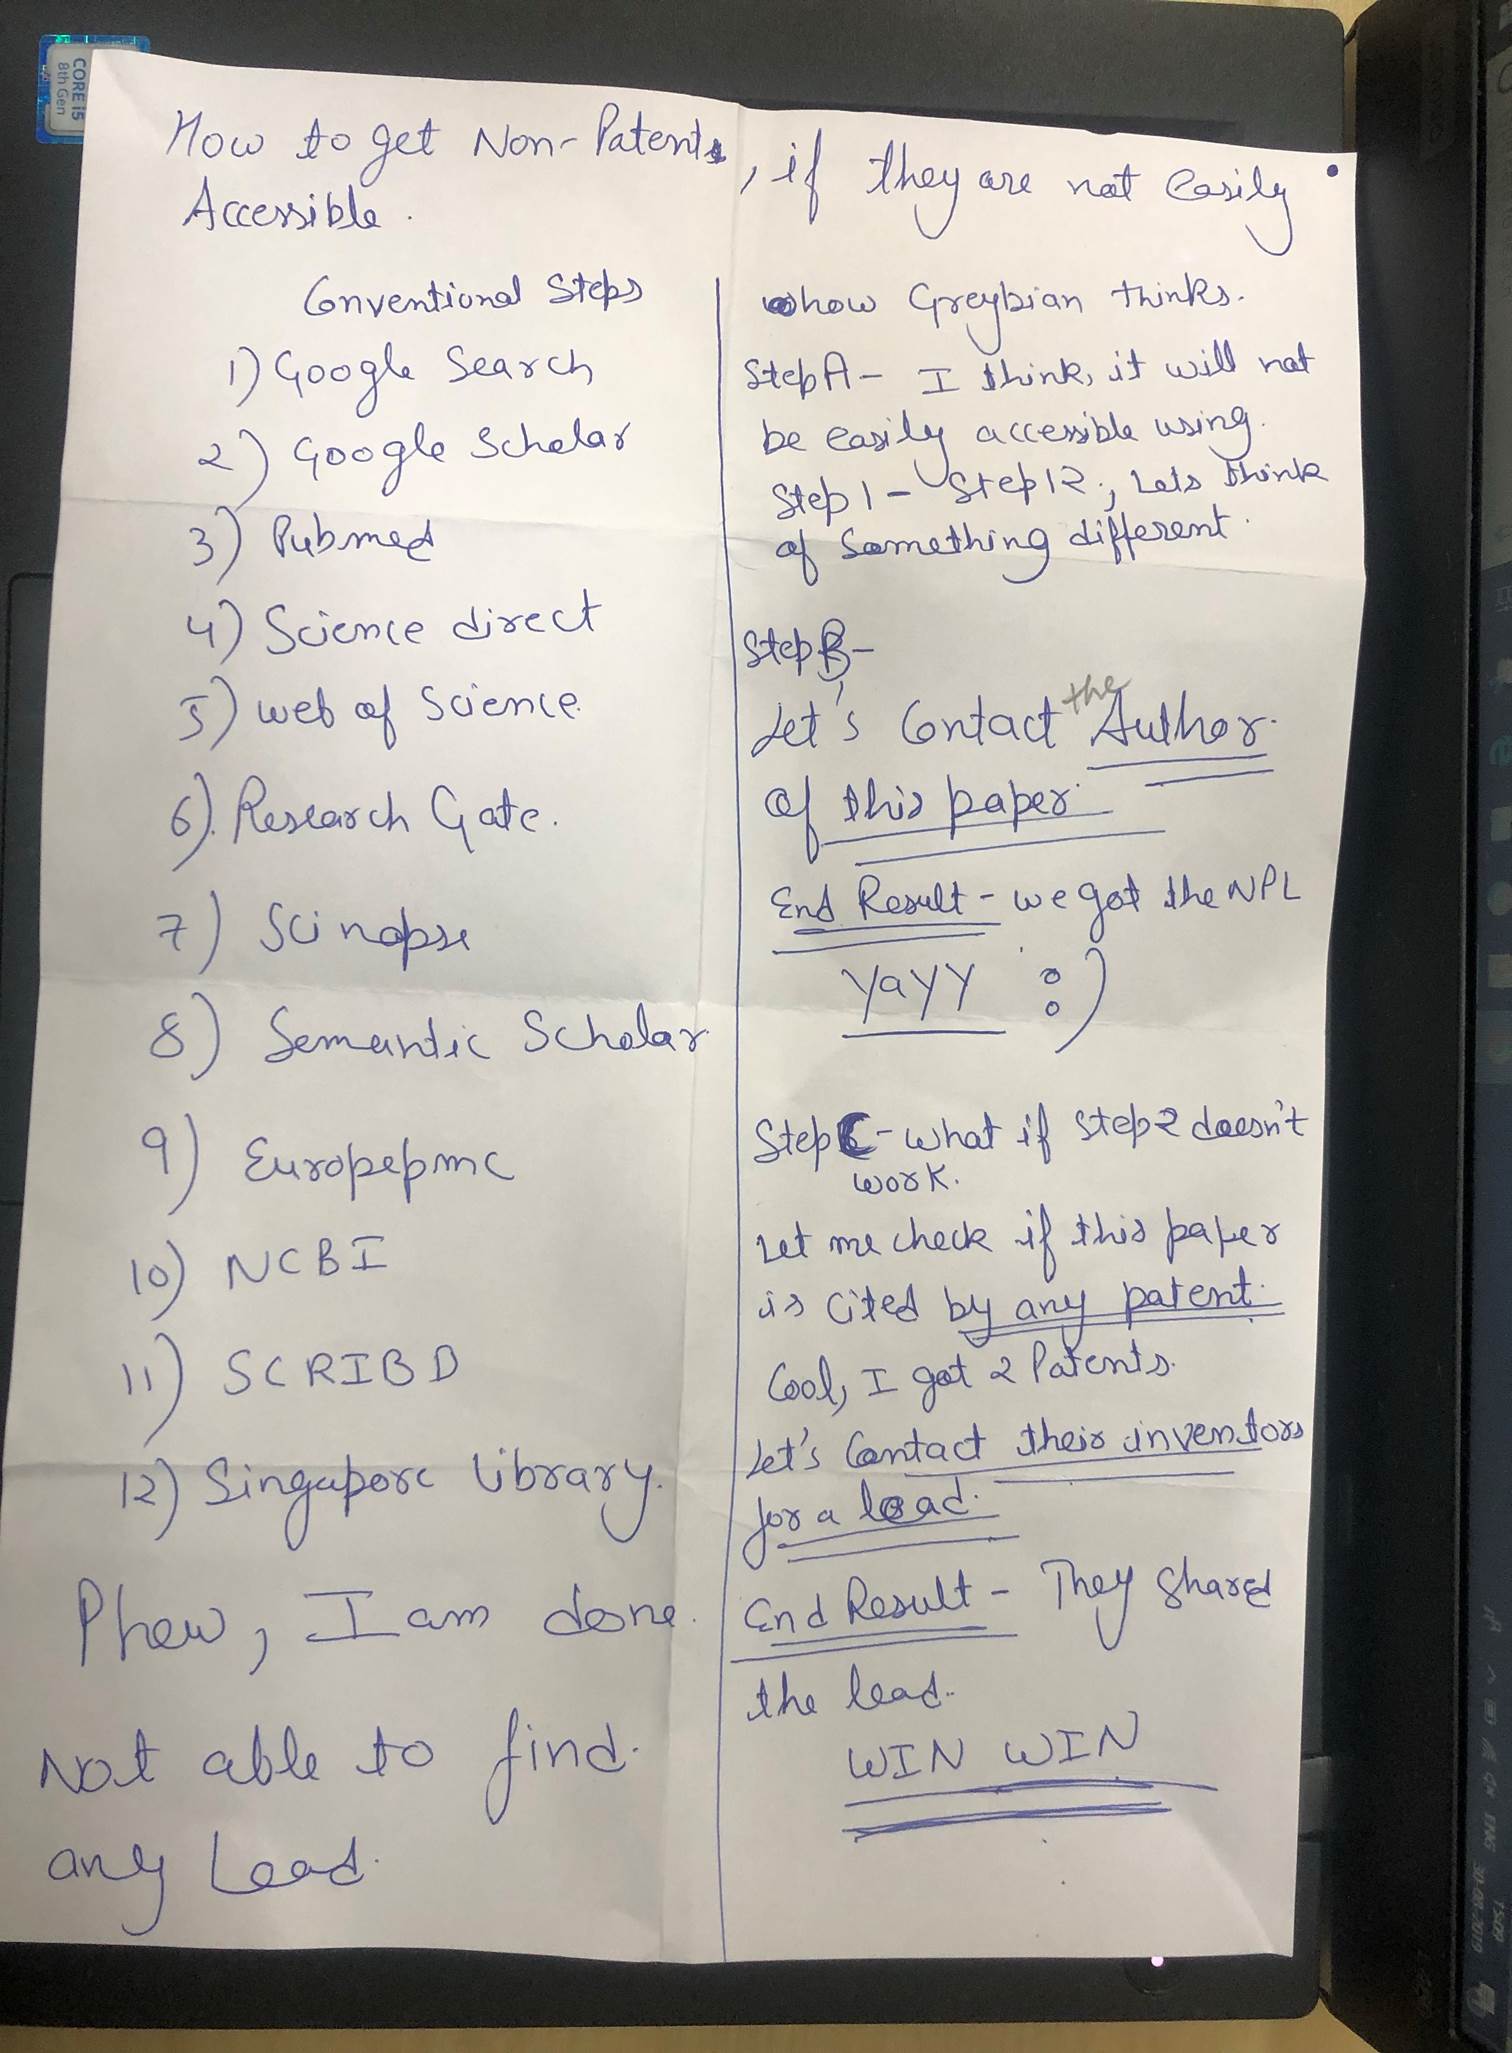 CORE i5
8th Gen
How to get Non-Patents, if they are not easily
Accessible.
Conventional Steps
1) Google Search
2) Google Scholar
3) Pubmed
4) Science direct
5) web of Science.
6). Research Gate.
7) Scinapse
8) Semantic Scholar
9) Europepmc
10) NCBI
11) SCRIBD
12) Singapore library.
Phew, I am done.
Not able to find.
any Lead.
how Greybian thinks.
Step A - I think, it will not
be easily accessible using.
Step 1 - Step 12, Lets think
of Something different.
Step B-
Let's Contact the Author.
of this paper.
End Result - we got the NPL
Yayy :)
Step C - what if step 2 doesn't
work.
Let me check if this paper
is cited by any patent.
Cool, I got 2 Patents.
Let's Contact their inventors
for a lead.
End Result - They shared
the lead.
WIN WIN
ENG
30-08-2019